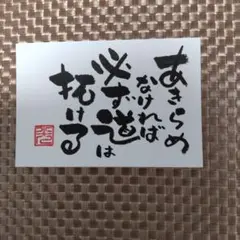 あきらめ
なければ
必ず道は
拓ける